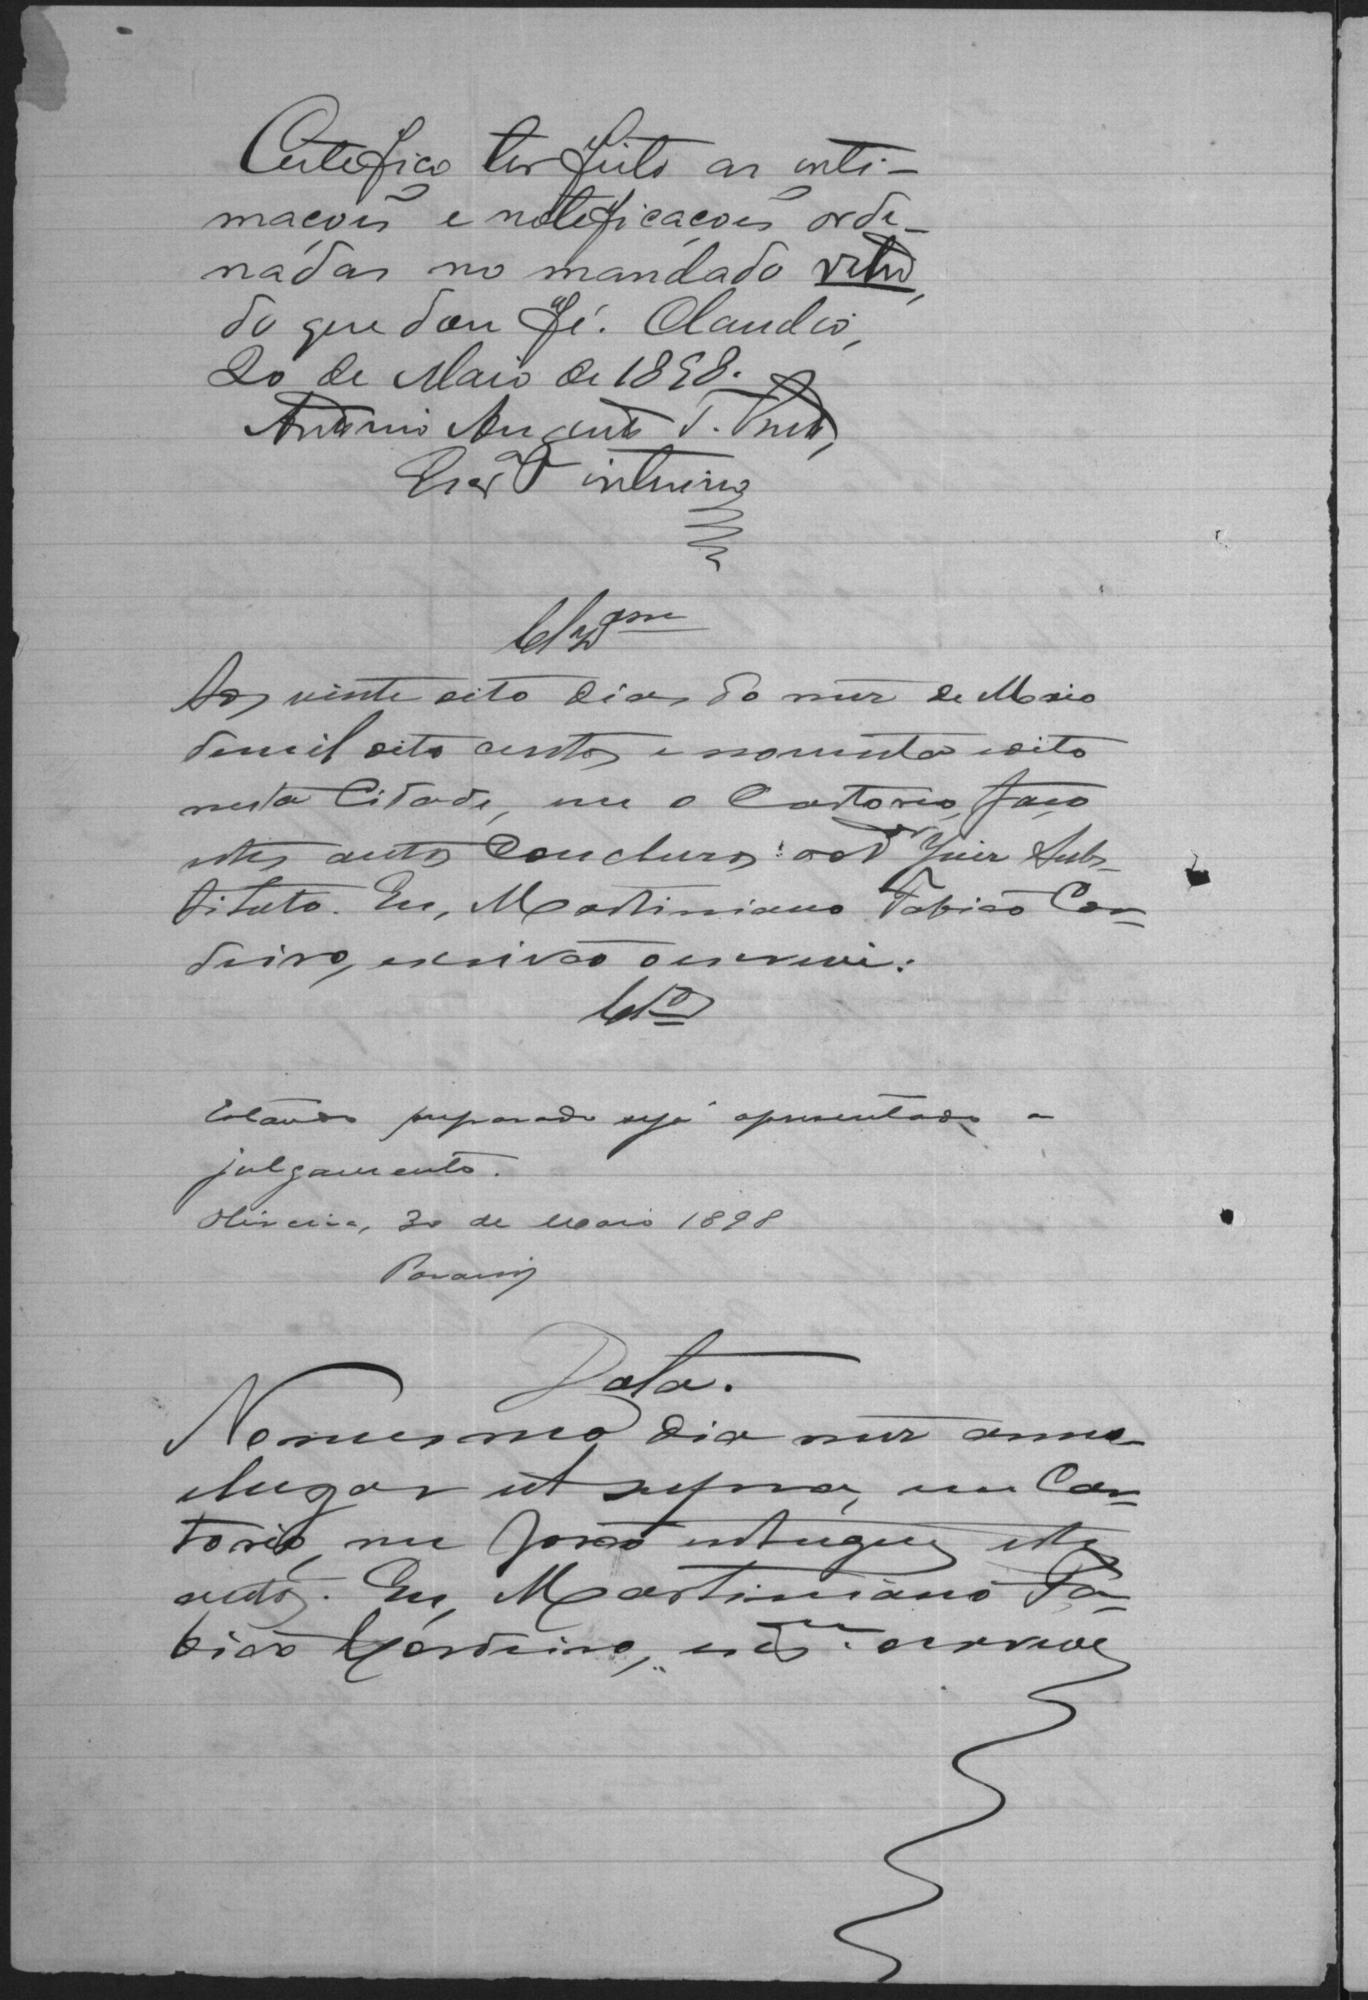 Certefico ter feito as inti-
maçois e noteficaçois orde-
nadas no mandado retro,
do que dou fé. Claudio,
20 de Maio de 1898.
Antonio Augusto T.
Escr.ᵃᵐ interino
Clzᵃᵐ
Aos vinte oito dias do mez de Maio
de mil oito centos e noventa e oito
nesta Cidade, em o Cartorio, faço
estes autos Concluzos ao Dʳ Juiz Subs-
tituto. Eu, Martiniano Fabião Cor-
deiro, escrivão o escrevi.
Clᵒˢ
Estando preparado seja apresentado a
julgamento.
Oliveira, 30 de Maio 1898
Data.
No mesmo dia mez anno
e lugar ut supra, em Car-
torio, me forão entregues estes
autos. Eu, Martiniano Fa-
bião Cordeiro, o escrevi